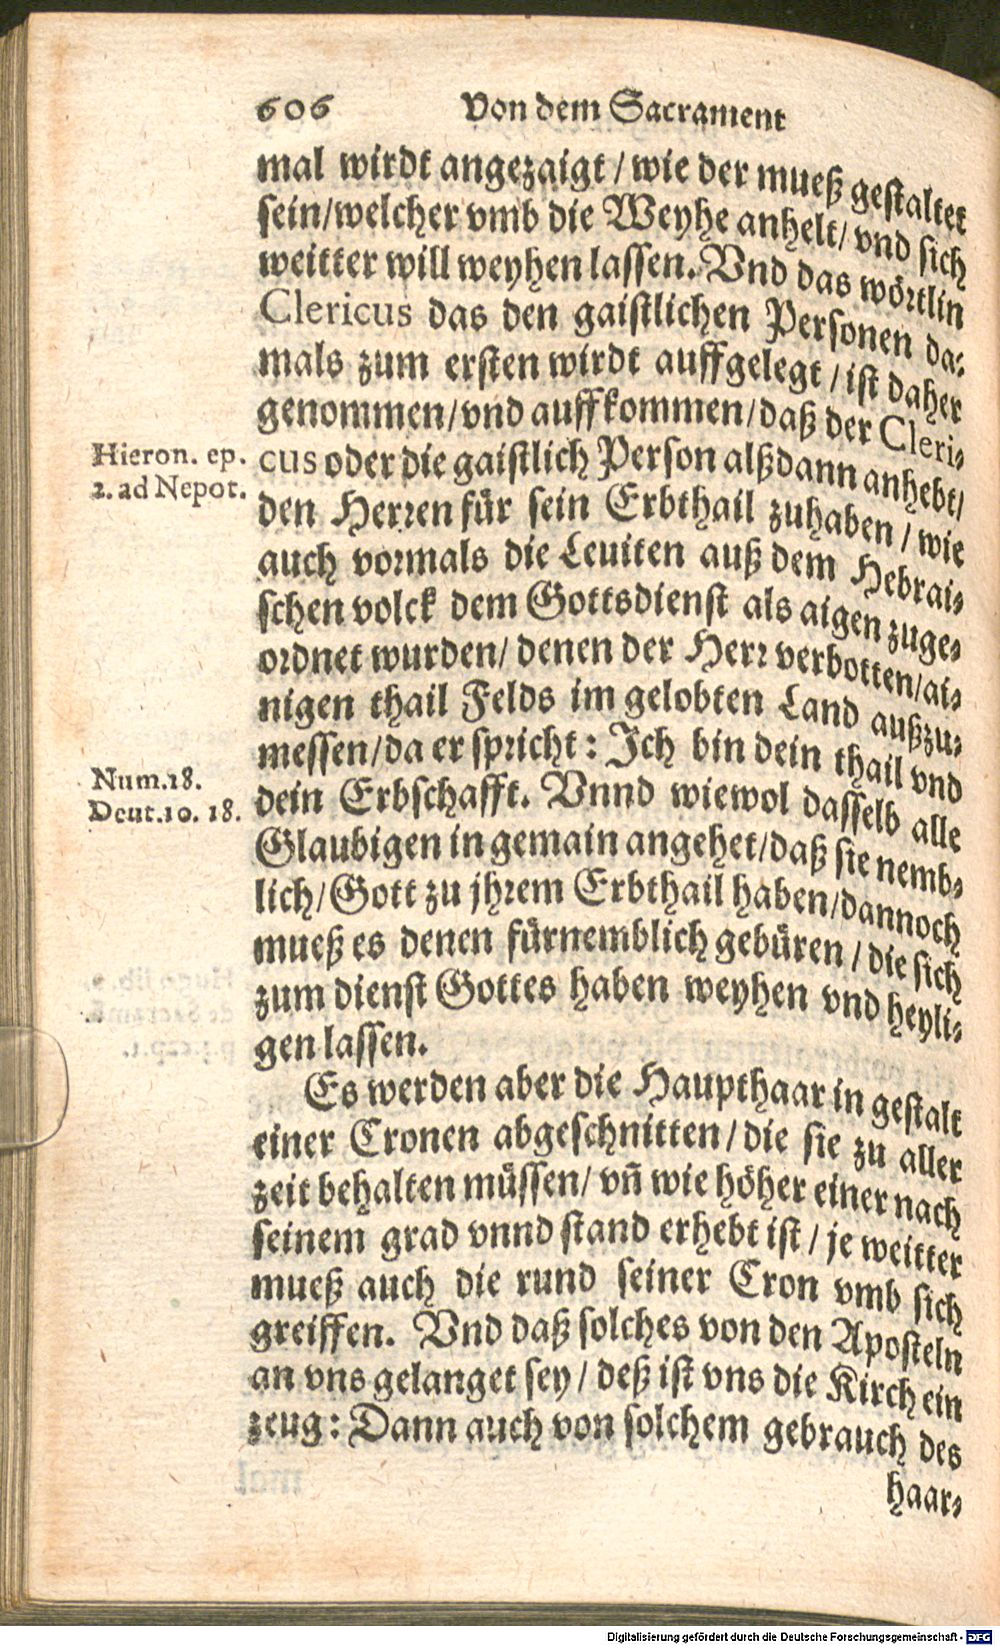 606 Von dem Sacrament
mal wirdt angezaigt / wie der mueß gestaltet
sein/welcher vmb die Weyhe anhelt/ vnd sich
weitter will weyhen lassen. Vnd das wörtlin
Clericus das den gaistlichen Personen da-
mals zum ersten wirdt auffgelegt / ist daher
genommen/vnd auffkommen/daß der Cleri-
Hieron. ep.
2. ad Nepot.
cus oder die gaistlich Person alßdann anhebt/
den Herren für sein Erbthail zuhaben / wie
auch vormals die Leuiten auß dem Hebrai-
schen volck dem Gottsdienst als aigen zuge-
ordnet wurden/ denen der Herr verbotten/ai-
nigen thail Felds im gelobten Land außzu-
messen/da er spricht: Ich bin dein thail vnd
Num.18.
Deut.10. 18.
dein Erbschafft. Vnnd wiewol dasselb alle
Glaubigen in gemain angehet/daß sie nemb-
lich/Gott zu jhrem Erbthail haben/dannoch
mueß es denen fürnemblich gebüren / die sich
zum dienst Gottes haben weyhen vnd heyli-
gen lassen.
Es werden aber die Haupthaar in gestalt
einer Cronen abgeschnitten/die sie zu aller
zeit behalten müssen/ vn̄ wie höher einer nach
seinem grad vnnd stand erhebt ist / je weitter
mueß auch die rund seiner Cron vmb sich
greiffen. Vnd daß solches von den Aposteln
an vns gelanget sey / deß ist vns die Kirch ein
zeug: Dann auch von solchem gebrauch des
haar-
Digitalisierung gefördert durch die Deutsche Forschungsgemeinschaft - DFG